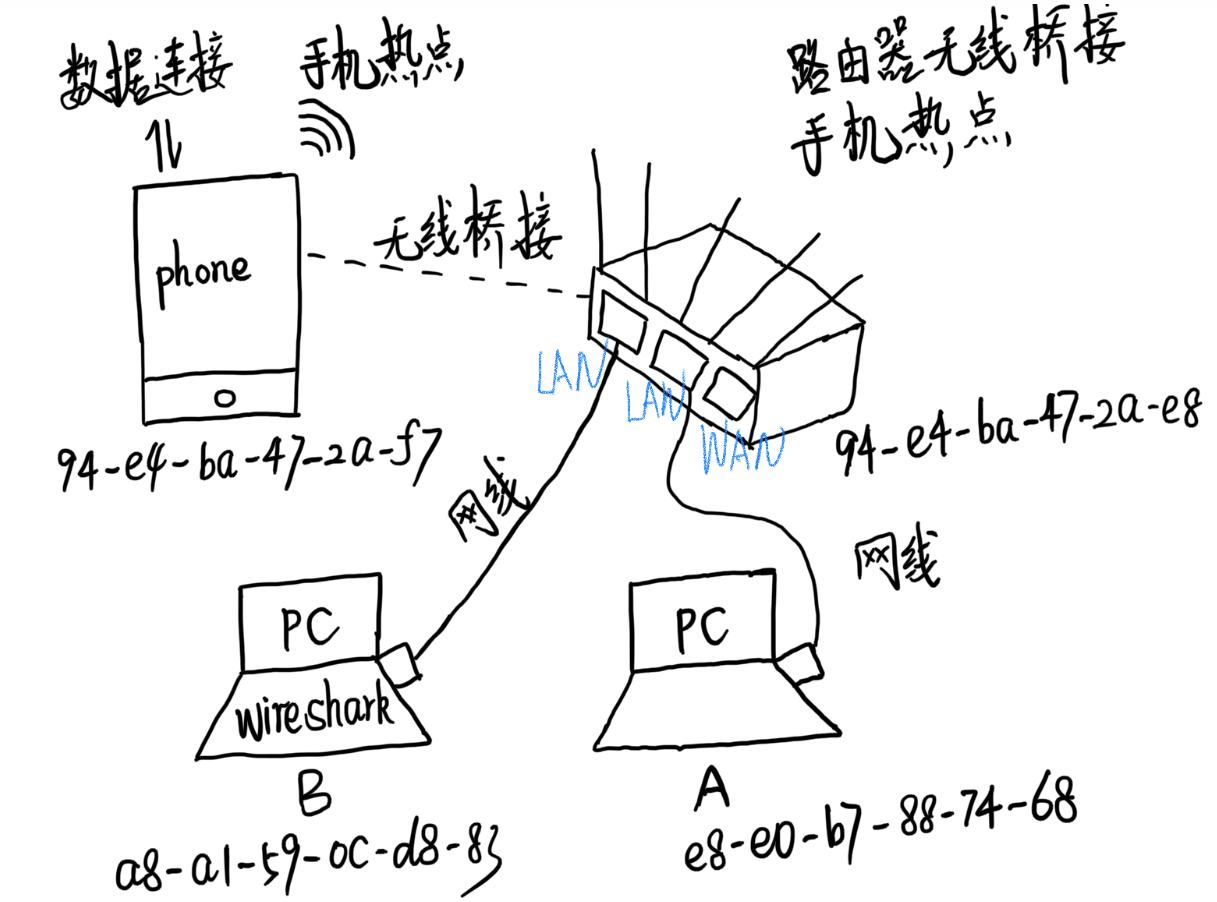 数据连接
手机热点
路由器无线桥接
手机热点
无线桥接
phone
LAN
LAN
WAN
94-e4-ba-47-2a-f7
94-e4-ba-47-2a-e8
网线
网线
PC
wireshark
B
a8-a1-59-0c-d8-83
PC
A
e8-e0-b7-88-74-68